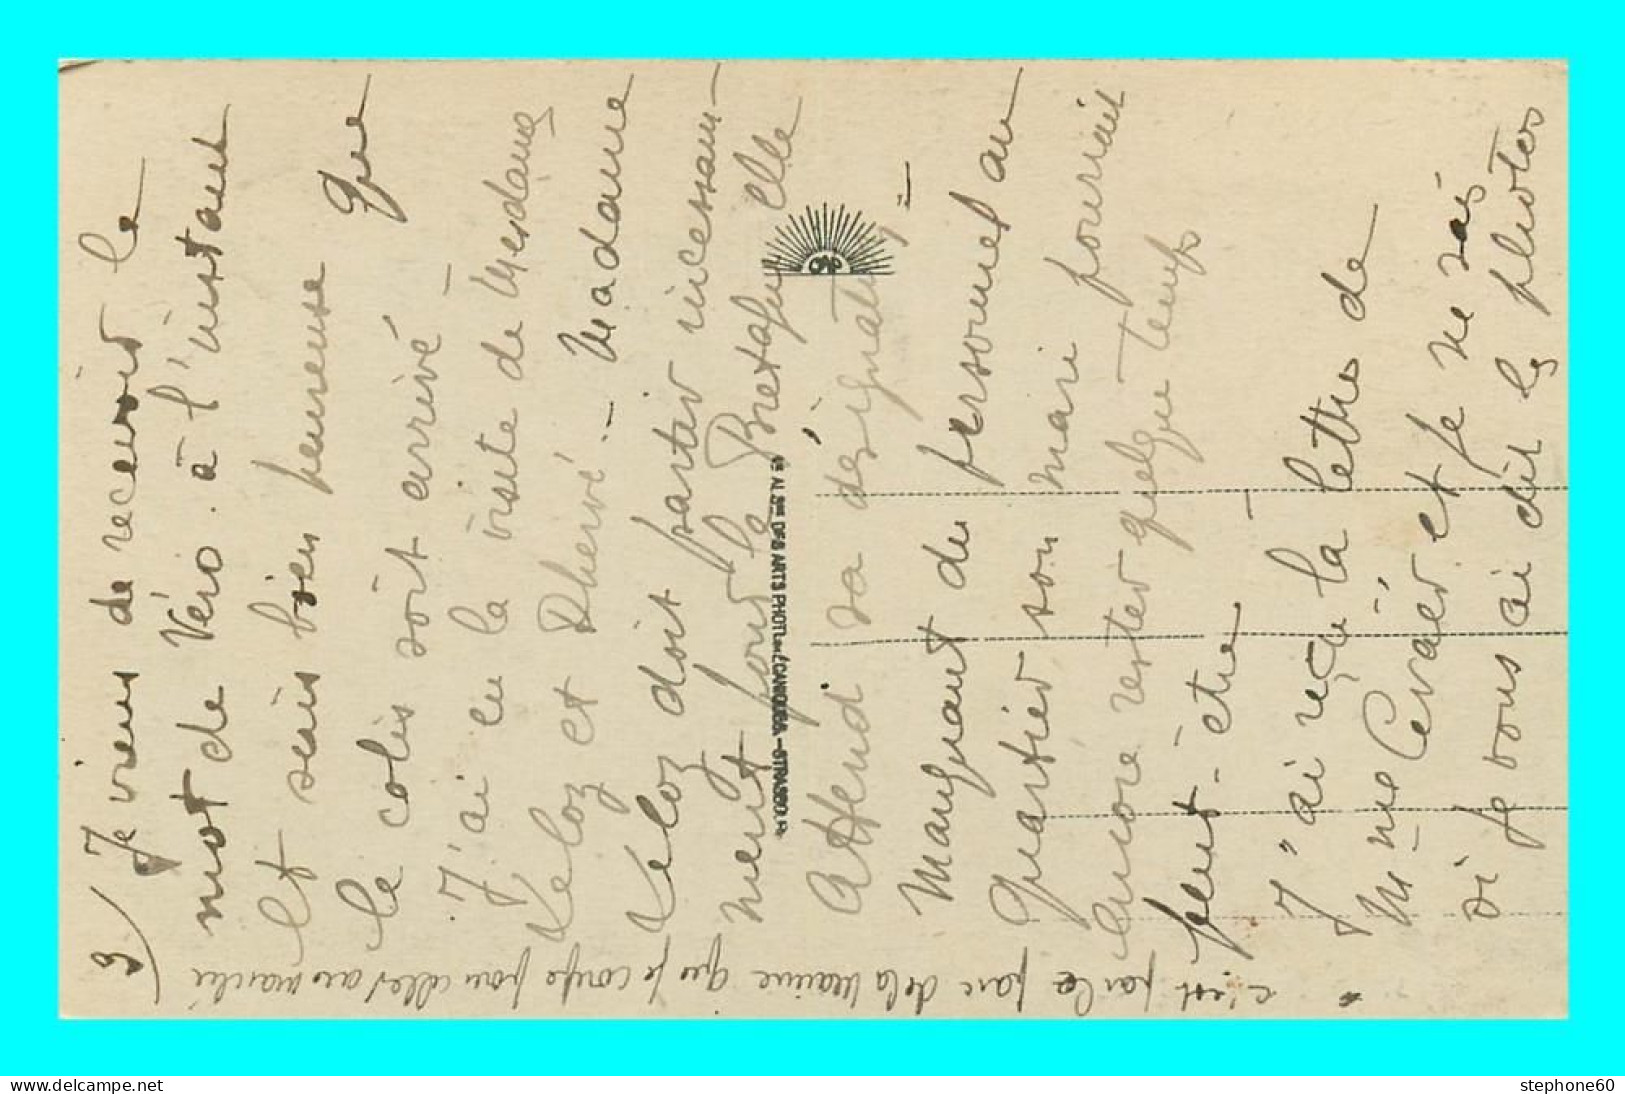 3/ Je viens de recevoir le
mot de Véro. à l'instant
Et suis bien heureuse que
le colis soit arrivé –
J'ai eu la visite de Mesdames
Veloz et Dhervé. – Madame
Veloz doit partir incessam-
ment pour la Bretagne elle
Attend sa désignation –
Manquant de personnel au
Quartier son mari pourrait
encore rester quelque temps
peut-être –
J'ai reçu la lettre de
Mme et je ne sais
si je vous ai dit les photos
* c'est par le parc de la Mairie que je coupe pour aller au marché
Cie ALSne DES ARTS PHOTOMÉCANIQUES. – STRASBOURG
stephone60